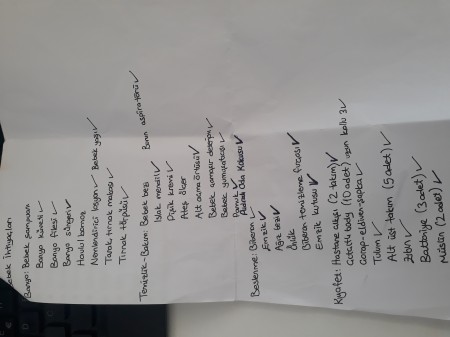 Bebek ihtiyaçları
Banyo: Bebek şampuanı
Banyo küveti ✓
Banyo filesi ✓
Banyo süngeri ✓
Havlu bornoz
Nemlendirici losyon ✓ Bebek yağı ✓
Tarak tırnak makası ✓
Tırnak törpüsü ✓
Temizlik-Bakım: Bebek bezi Burun aspiratörü ✓
Islak mendil ✓
Pişik kremi ✓
Ateş ölçer
Alt açma örtüsü ✓
Bebek çamaşır deterjanı ✓
Bebek yumuşatıcısı ✓
Pamuk
Oda Kokusu ✓
Beslenme: Biberon ✓
Emzik ✓
Ağız bezi ✓
Önlük
Biberon temizleme fırçası ✓
Emzik kutusu ✓
Kıyafet: Hastane çıkışı (2 takım) ✓
Çıtçıtlı body (10 adet) uzun kollu 3 ✓
Çorap-eldiven-şapka ✓
Tulum ✓
Alt üst takım (5 adet) ✓
Zıbın ✓
Battaniye (3 adet) ✓
Müslin (2 adet) ✓